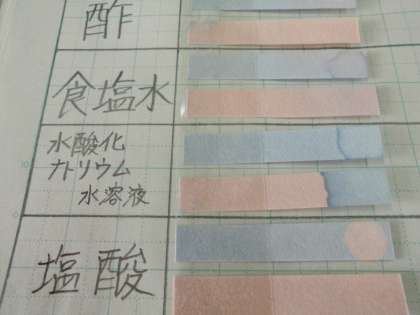 酢
食塩水
水酸化
ナトリウム
水溶液
塩酸